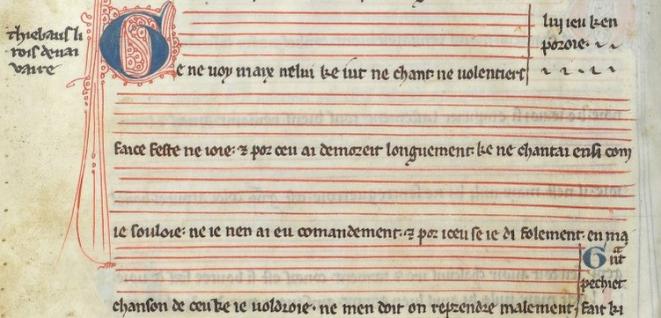 thiebaus li
rois de nai
vaire
liu ieu ken
poroie.
Ge ne uoy maix nelui ke iut ne chant ne uolentiers
faice feste ne ioie: ⁊ por ceu ai demoreit longuement. ke ne chantai ensi com
ie souloie: ne ie nen ai eu comandement. ⁊ por iceu se ie di folement. en ma
chanson de ceu ke ie uoldroie. ne men doit on reprendre malement.
Gent
pechiet
fait ki